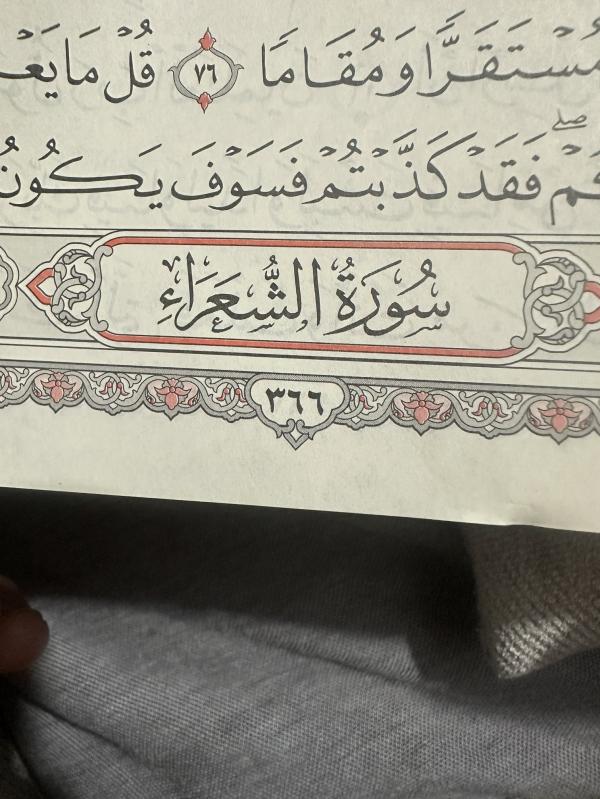 مُسْتَقَرًّا وَمُقَامًا ٧٦ قُلْ مَا
فَقَدْ كَذَّبْتُمْ فَسَوْفَ يَكُونُ
سُورَةُ الشُّعَرَاءِ
٣٦٦